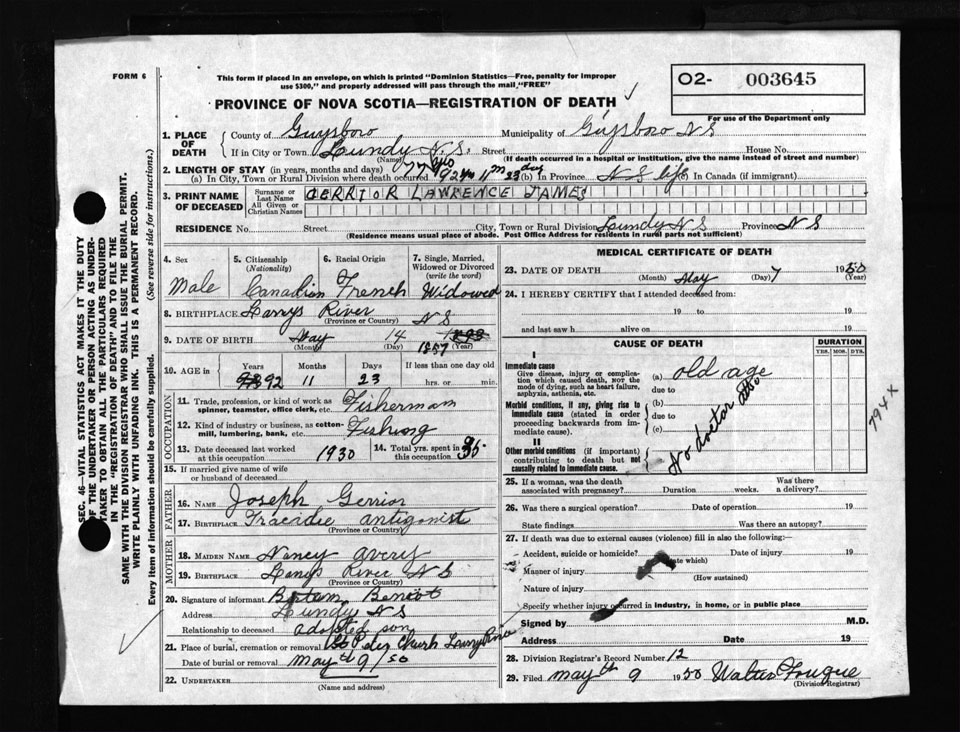 FORM 6
This form if placed in an envelope, on which is printed "Dominion Statistics—Free, penalty for improper
use $300," and properly addressed will pass through the mail "FREE"
O2- 003645
PROVINCE OF NOVA SCOTIA—REGISTRATION OF DEATH
For use of the Department only
1. PLACE OF DEATH
County of Guysboro Municipality of Guysboro N S
If in City or Town Lundy N. S. Street House No.
(Name) (If death occurred in a hospital or institution, give the name instead of street and number)
2. LENGTH OF STAY (in years, months and days)
(a) In City, Town or Rural Division where death occurred 92 11 m 23 day (b) In Province N S life In Canada (if immigrant)
3. PRINT NAME OF DECEASED
Surname or Last Name
All Given or Christian Names
GERRIOR LAWRENCE JAMES
RESIDENCE No. Street City, Town or Rural Division Lundy N S Province N S
(Residence means usual place of abode. Post Office Address for residents in rural parts not sufficient)
4. Sex
Male
5. Citizenship
(Nationality)
Canadian
6. Racial Origin
French
7. Single, Married,
Widowed or Divorced
(write the word)
Widowed
8. BIRTHPLACE Larrys River N S
(Province or Country)
9. DATE OF BIRTH May 14 1857
(Month) (Day) (Year)
10. AGE in Years Months Days If less than one day old
92 11 23 hrs. or min.
OCCUPATION
11. Trade, profession or kind of work as
spinner, teamster, office clerk, etc. Fisherman
12. Kind of industry or business, as cotton-
mill, lumbering, bank, etc. Fishing
13. Date deceased last worked
at this occupation 1930
14. Total yrs. spent in
this occupation
15. If married give name of wife
or husband of deceased
FATHER
16. NAME Joseph Gerrior
17. BIRTHPLACE Tracadie antigonist
(Province or Country)
MOTHER
18. MAIDEN NAME Nancy avery
19. BIRTHPLACE Larrys River N S
(Province or Country)
20. Signature of informant Benoit
Address Lundy N S
Relationship to deceased adopted son
21. Place of burial, cremation or removal Church Larrys River
Date of burial or removal May 9/50
22. UNDERTAKER
(Name and address)
MEDICAL CERTIFICATE OF DEATH
23. DATE OF DEATH May 7 1950
(Month) (Day) (Year)
24. I HEREBY CERTIFY that I attended deceased from:
19 to 19
and last saw h alive on 19
CAUSE OF DEATH
DURATION
YRS. MOS. DYS.
I
Immediate cause
Give disease, injury or complica-
tion which caused death, NOT the
mode of dying, such as heart failure,
asphyxia, asthenia, etc.
(a) old age
due to
Morbid conditions, if any, giving rise to
immediate cause (stated in order
proceeding backwards from im-
mediate cause).
(b)
due to
(c)
II
Other morbid conditions (if important)
contributing to death but not
causally related to immediate cause.
No doctor
794 X
25. If a woman, was the death
associated with pregnancy? Duration weeks. Was there
a delivery?
26. Was there a surgical operation? Date of operation 19
State findings Was there an autopsy?
27. If death was due to external causes (violence) fill in also the following:—
Accident, suicide or homicide? Date of injury 19
(State which)
Manner of injury
(How sustained)
Nature of injury
Specify whether injury occurred in industry, in home, or in public place
Signed by M.D.
Address Date 19
28. Division Registrar's Record Number 12
29. Filed May 9 1950
(Division Registrar)
SEC. 46—VITAL STATISTICS ACT MAKES IT THE DUTY
OF THE UNDERTAKER OR PERSON ACTING AS UNDER-
TAKER TO OBTAIN ALL THE PARTICULARS REQUIRED
IN THE "REGISTRATION OF DEATH" AND TO FILE THE
SAME WITH THE DIVISION REGISTRAR WHO SHALL ISSUE THE BURIAL PERMIT.
WRITE PLAINLY WITH UNFADING INK. THIS IS A PERMANENT RECORD.
Every item of information should be carefully supplied. (See reverse side for instructions.)